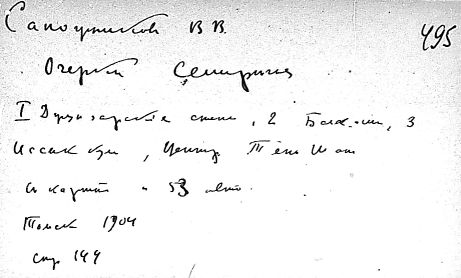 Сапожников В В.
495
Очерки Семиречья
I Джунгарские степи, 2 Балхаш, 3
Иссык куль, Центр Тянь Шань
с картой и 53 авто.
Томск 1904
стр 144